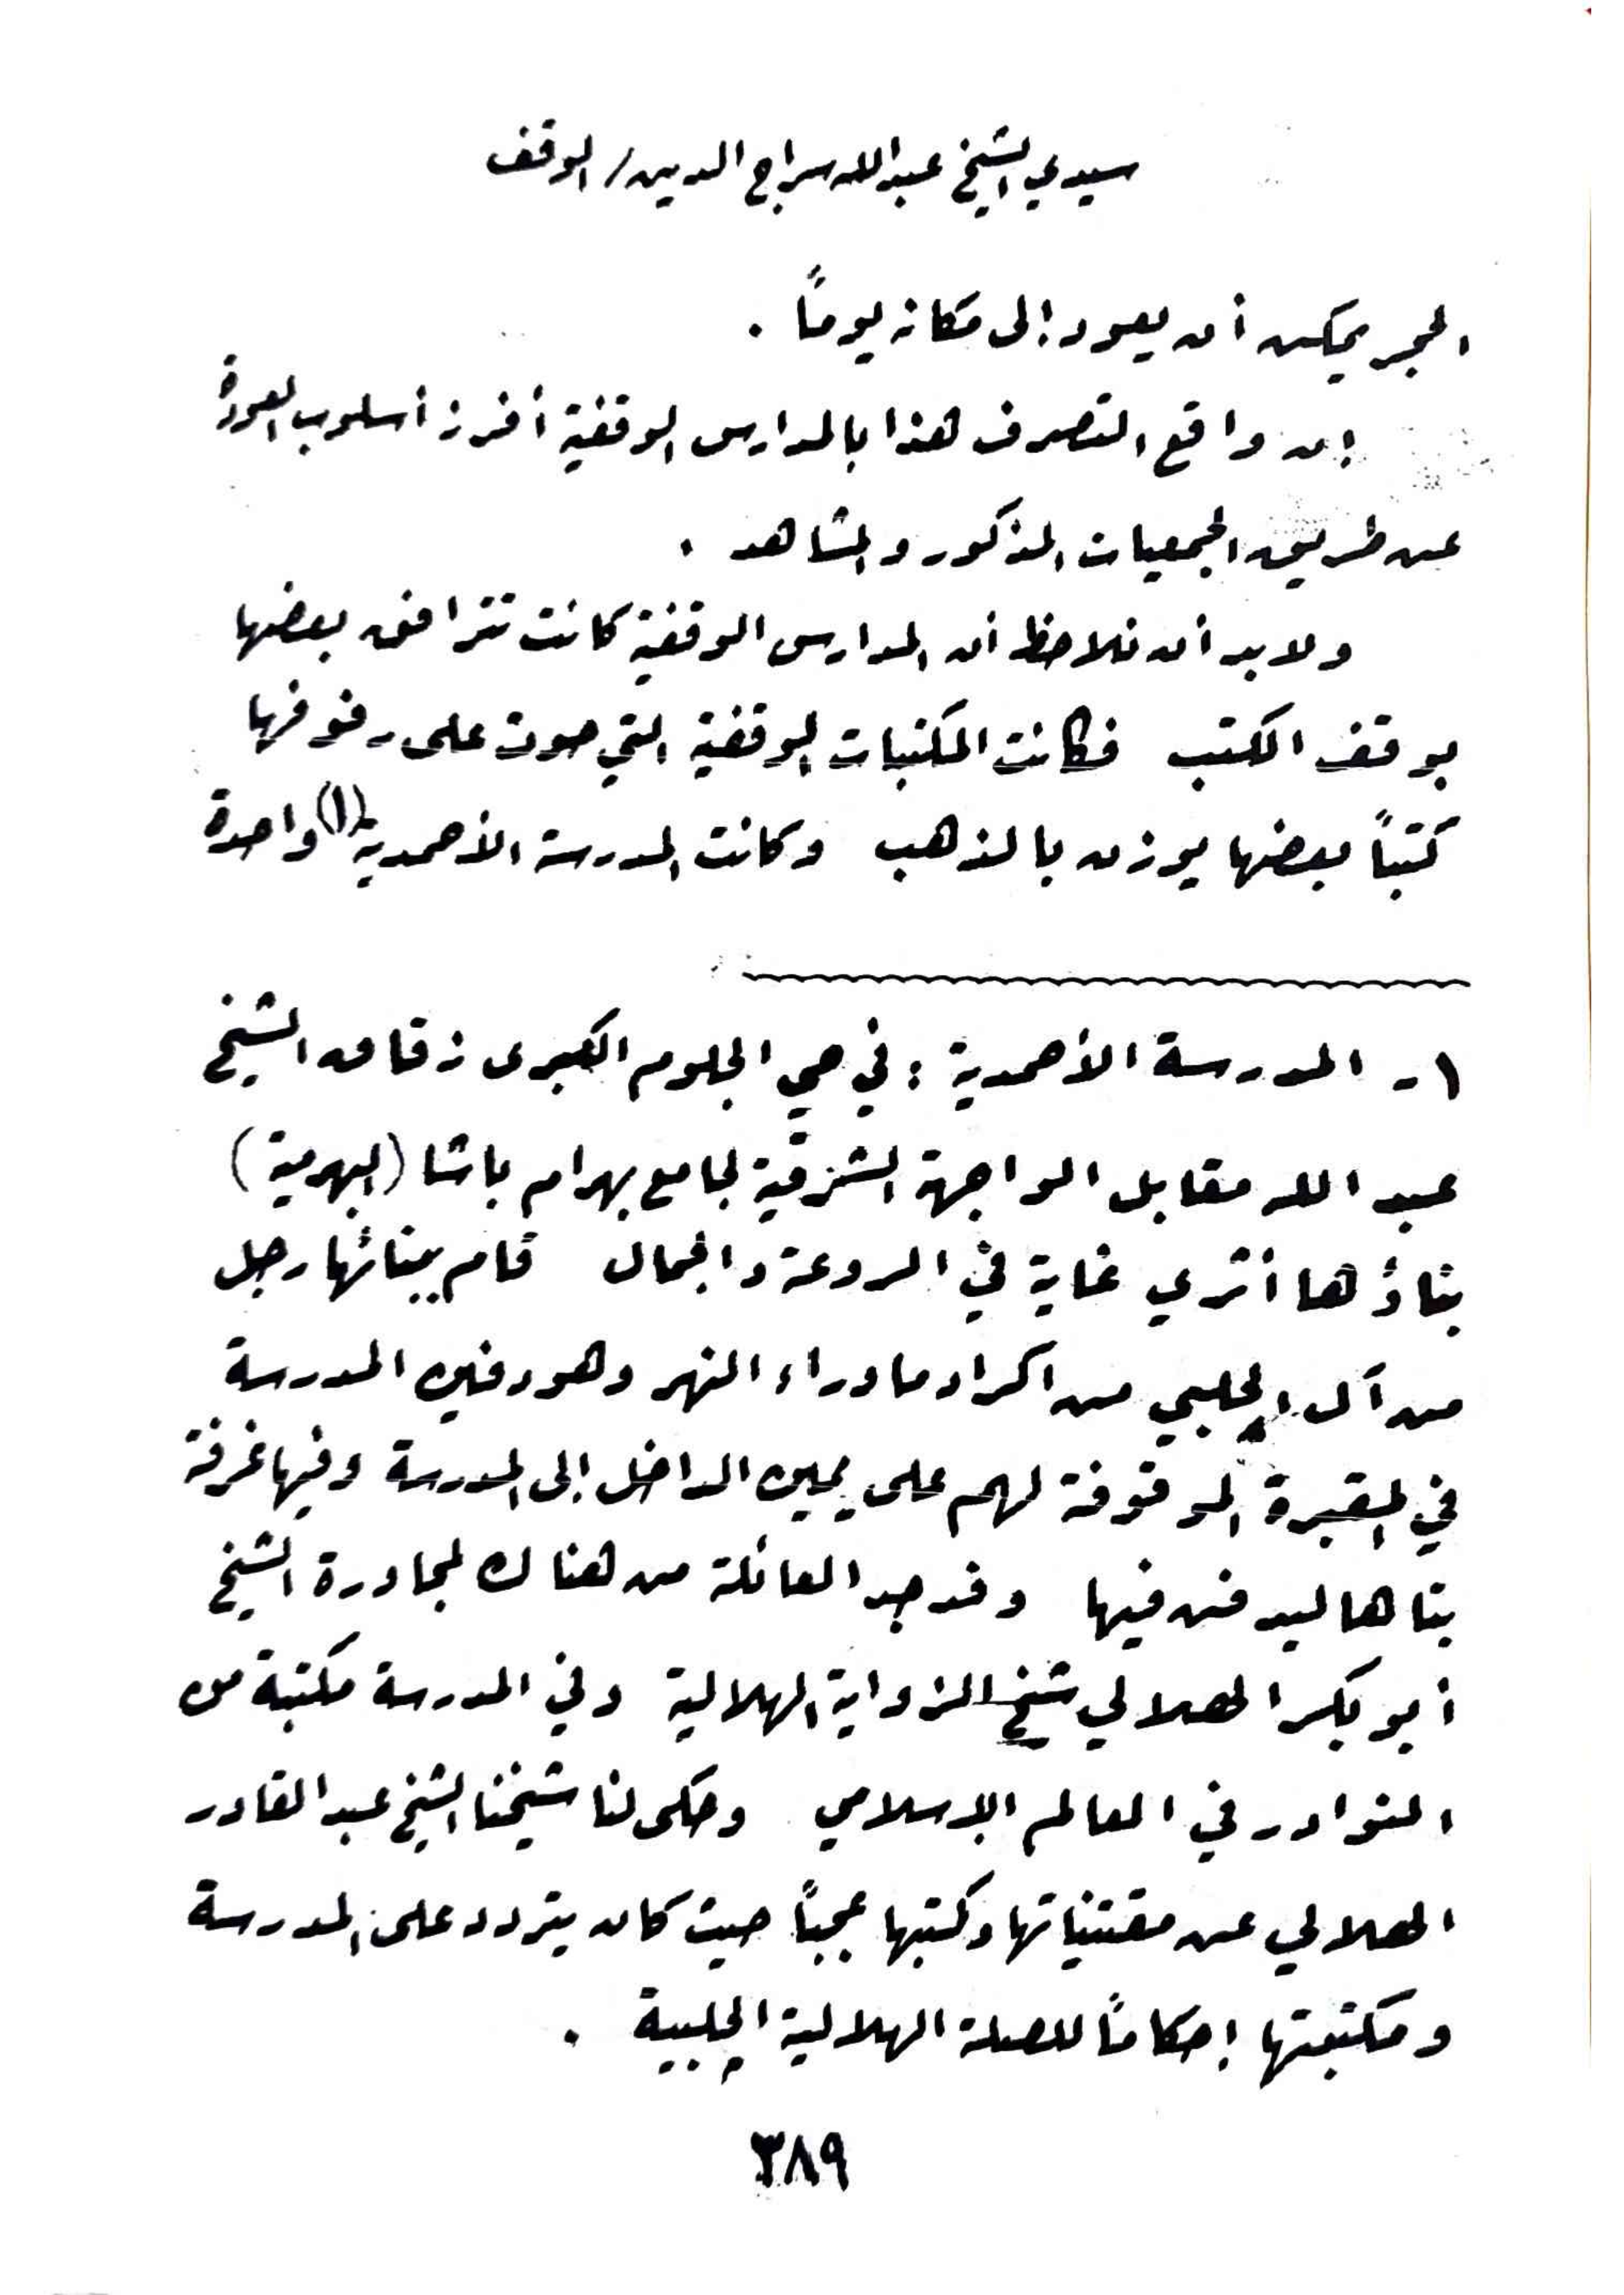 سيدي الشيخ عبدالله سراج الدين / الوقف
الحجر يمكن أن يعود إلى مكانه يوماً .
إن واقع التصرف هذا بالمدارس الوقفية أفرز أسلوب العودة
عن طريق الجمعيات المذكور والمشاهد .
ولابد أن نلاحظ أن المدارس الوقفية كانت تترافق بعضها
بوقف الكتب فكانت المكتبات الوقفية التي حوت على رفوفها
كتباً بعضها يوزن بالذهب وكانت المدرسة الأحمدية (١) واحدة
١- المدرسة الأحمدية : في حي الجلوم الكبرى زقاق الشيخ
عبد الله مقابل الواجهة الشرقية لجامع بهرام باشا (البهرمية)
بناؤها أثري غاية في الروعة والجمال قام ببنائها رجل
من آل الچلبي من اكراد ما وراء النهر وهو دفين المدرسة
في المقبرة الموقوفة لهم على يمين الداخل إلى المدرسة وفيها غرفة
بناها ليدفن فيها وقد جد العائلة من هناك لمجاورة الشيخ
أبو بكر الهلالي شيخ الزواية الهلالية وفي المدرسة مكتبة من
النوادر في العالم الإسلامي وحكى لنا شيخنا الشيخ عبد القادر
الهلالي عن مقتنياتها وكتبها عجباً حيث كان يتردد على المدرسة
ومكتبتها إحكاماً للصلة الهلالية الچلبية .
٣٨٩